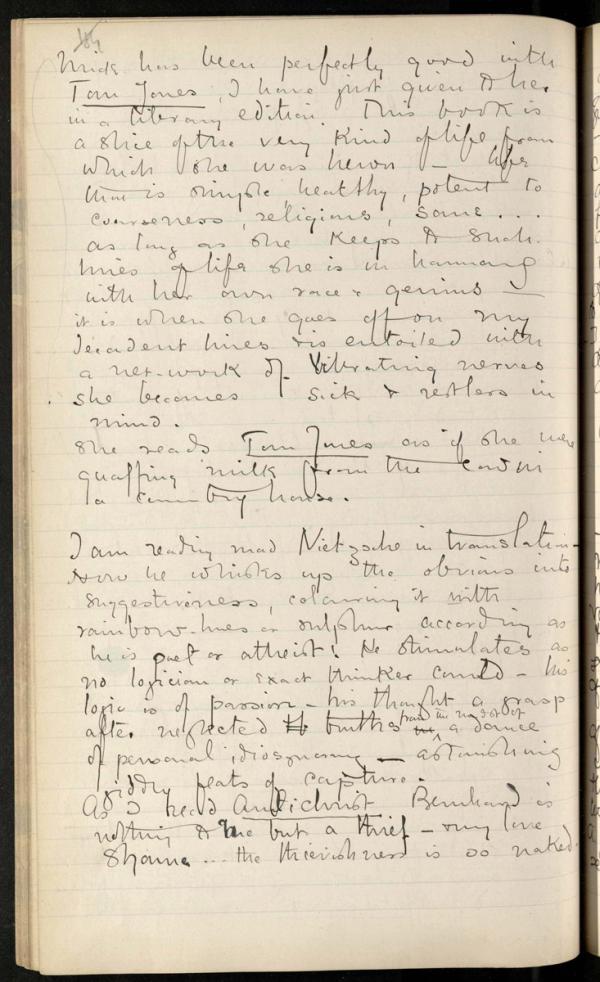 has been perfectly good with
Tom Jones, I have just given to her
in a library edition. This book is
a slice of the very kind of life from
which she was hewn — life
that is simple, healthy, potent to
coarseness, religious, sane...
as long as she keeps to such
lines of life she is in harmony
with her own race & genius —
it is when she goes off on my
decadent lines & is entoiled with
a net-work of vibrating nerves
she becomes sick & restless in
mind.
She reads Tom Jones as if she were
quaffing milk from the cow in
a country house.
I am reading mad Nietzsche in translation –
How he whisks up the obvious into
suggestiveness, colouring it with
rainbow-hues or sulphur according as
he is poet or atheist! He stimulates as
no logician or exact thinker could – his
logic is of passion – his thought a grasp
after neglected truths from the midst of a dance
of personal idiosyncrasy — astonishing
giddy feats of capture.
As I read Antichrist Bernhard is
nothing to me but a thief – my love
Shame... the thievishness is so naked.